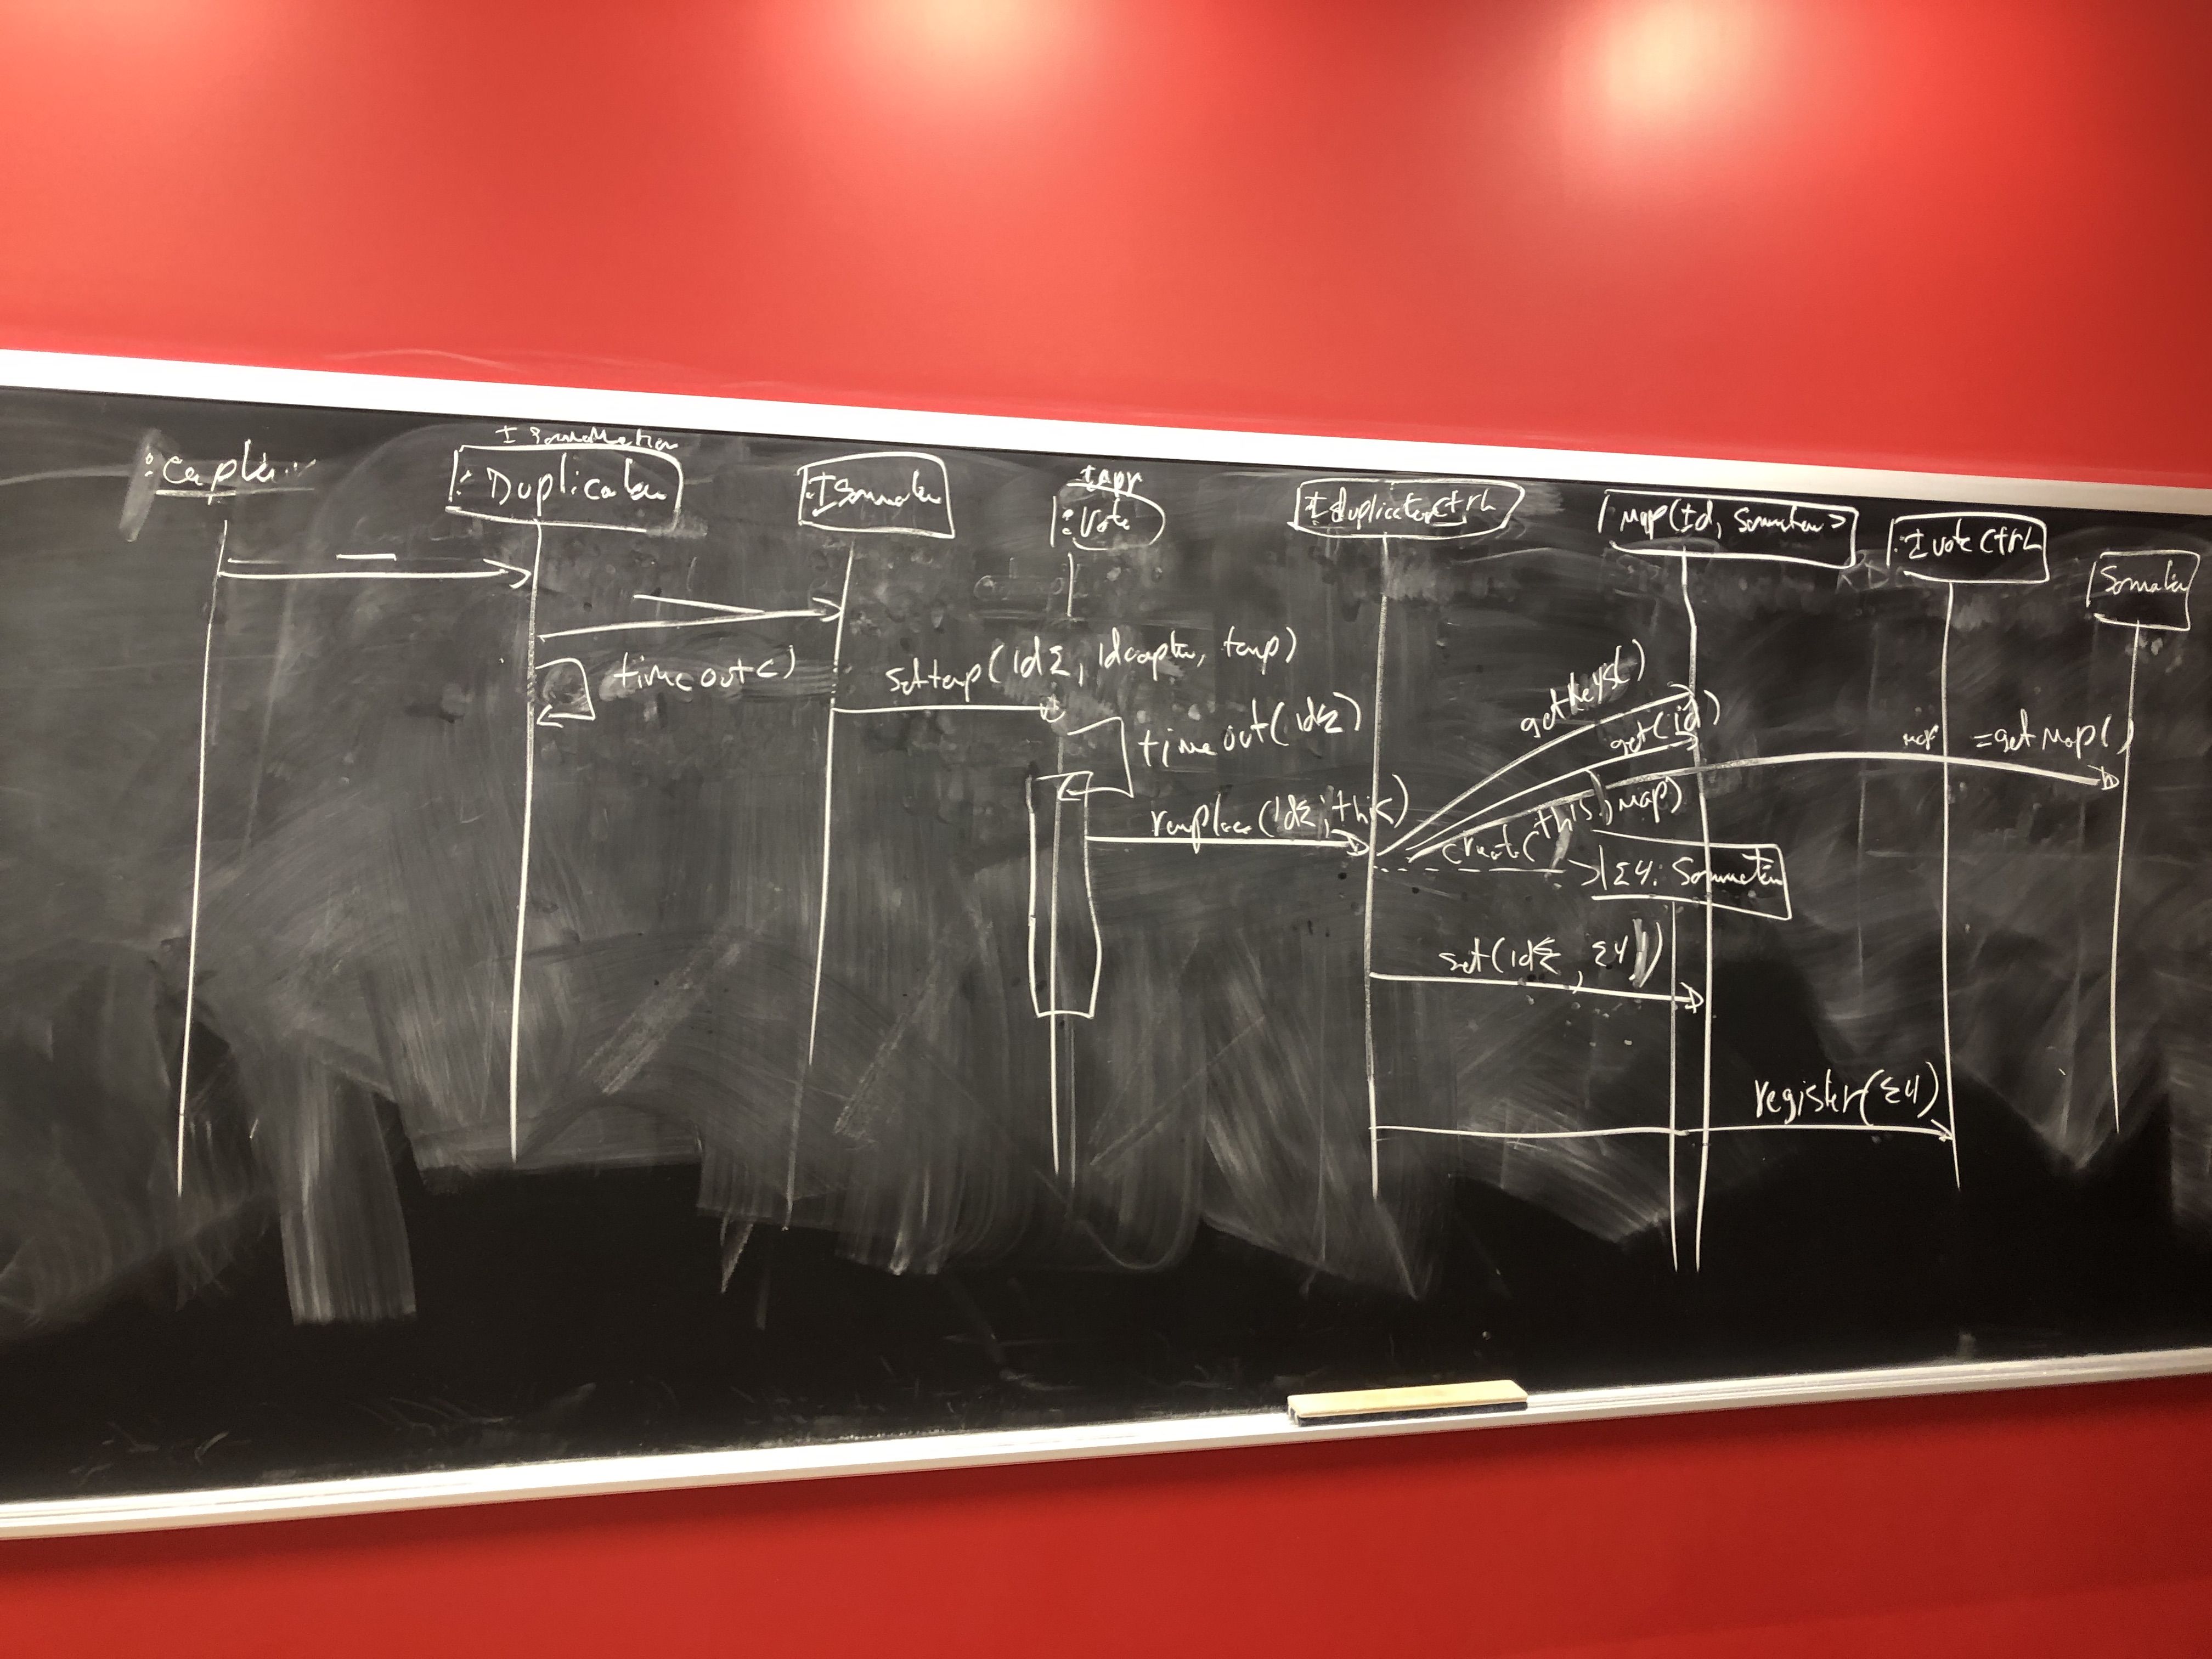 I Sommateur
:Capteur
:Duplicateur
:ISommateur
:Vote
IDuplicateurCtrl
Map(Id, Sommateur>
:IvoteCtrl
Sommateur
timeout()
settemp(idΣ, idcapteur, temp)
timeout(idΣ)
remplace(idΣ, this)
getKeys()
get(id)
map =getMap()
create(this, map)
Σ4: Sommateur
set(idΣ, Σ4)
register(Σ4)